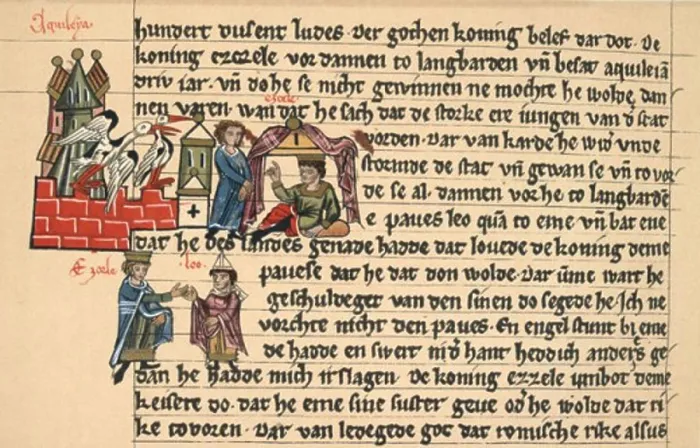 Aquileya
hundert dusent ludes. Der gochen koning belef dar dot. De
koning etzele vor dannen to langbarden vn̄ besat aquileiā
driv iar. vn̄ do he se nicht gewinnen ne mochte he wolde dan
nen varen. wan dat he sach dat de storke ere iungen van d̓ stat
ezcele
vorden. Dar van karde he wid̓ vnde
stormde de stat vn̄ gewan se vn̄ to vor
de se al. dannen vor he to langbardē
e paues leo quā to eme vn̄ bat ene
dat he des landes genade hadde dat louede de koning deme
Ezcele leo
pauese dat he dat don wolde. Dar ūme wart he
geschuldeget van den sinen do segede he. Ich ne
vorchte nicht den paues. En engel stunt bi eme
de hadde en swert in d̓ hant heddich anders ge
dan he hadde mich irslagen. De koning ezzele unbot deme
keisere do. dat he eme sine suster geue od̓ he wolde dat ri
ke tovoren. Dar van ledegede got dat romische rike alsus